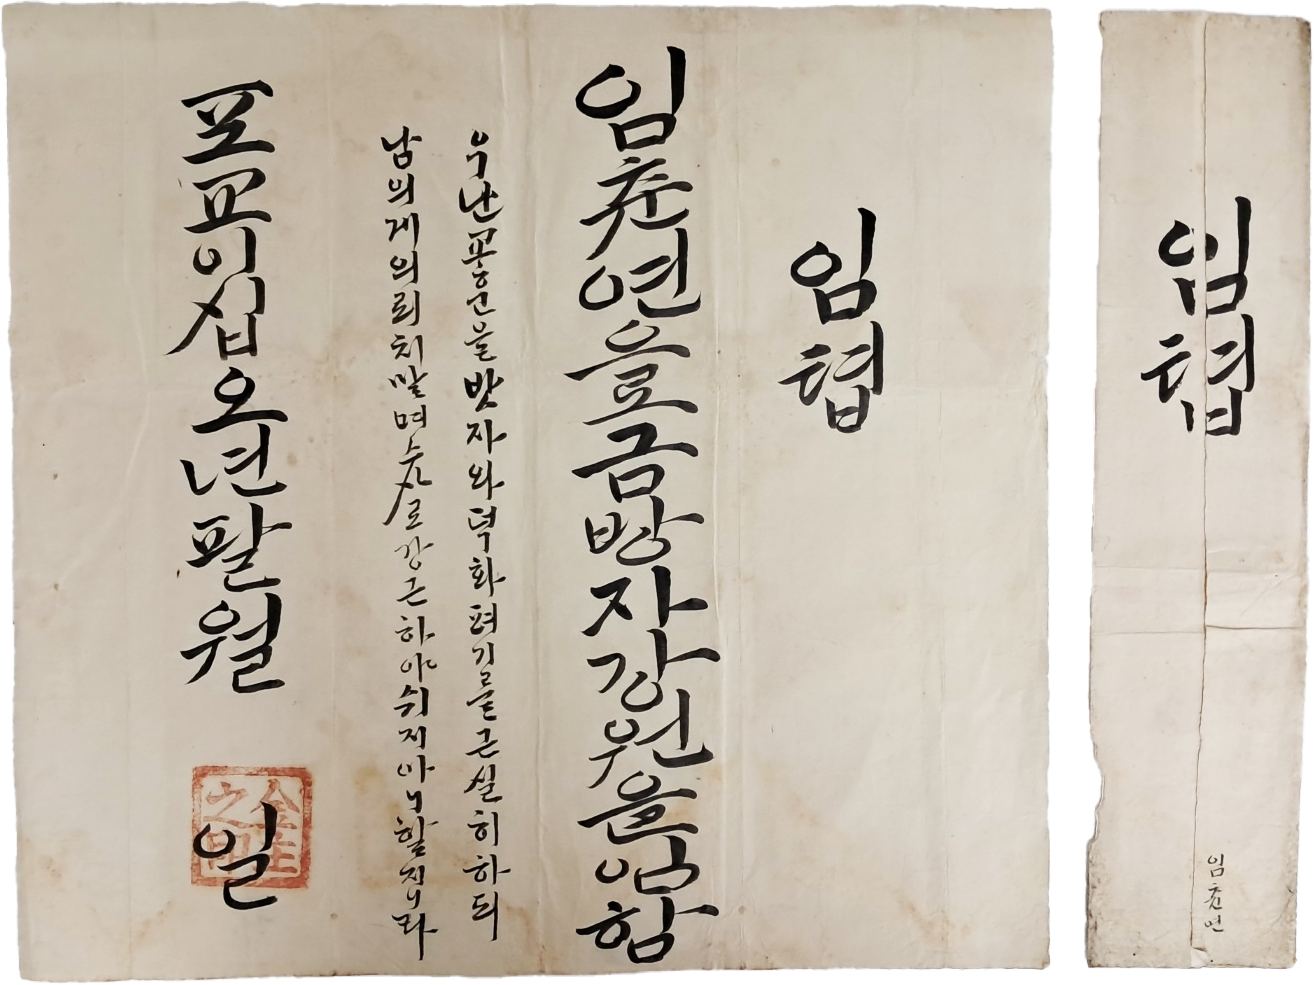 임첩
임춘연으로금방자강원을임함
우난교훈을밧자와덕화펴기를근실히하되
남의게의뢰치말며스스로강근하야쉬지아니할지니라
포교이십오년팔월
일
임첩
임춘연